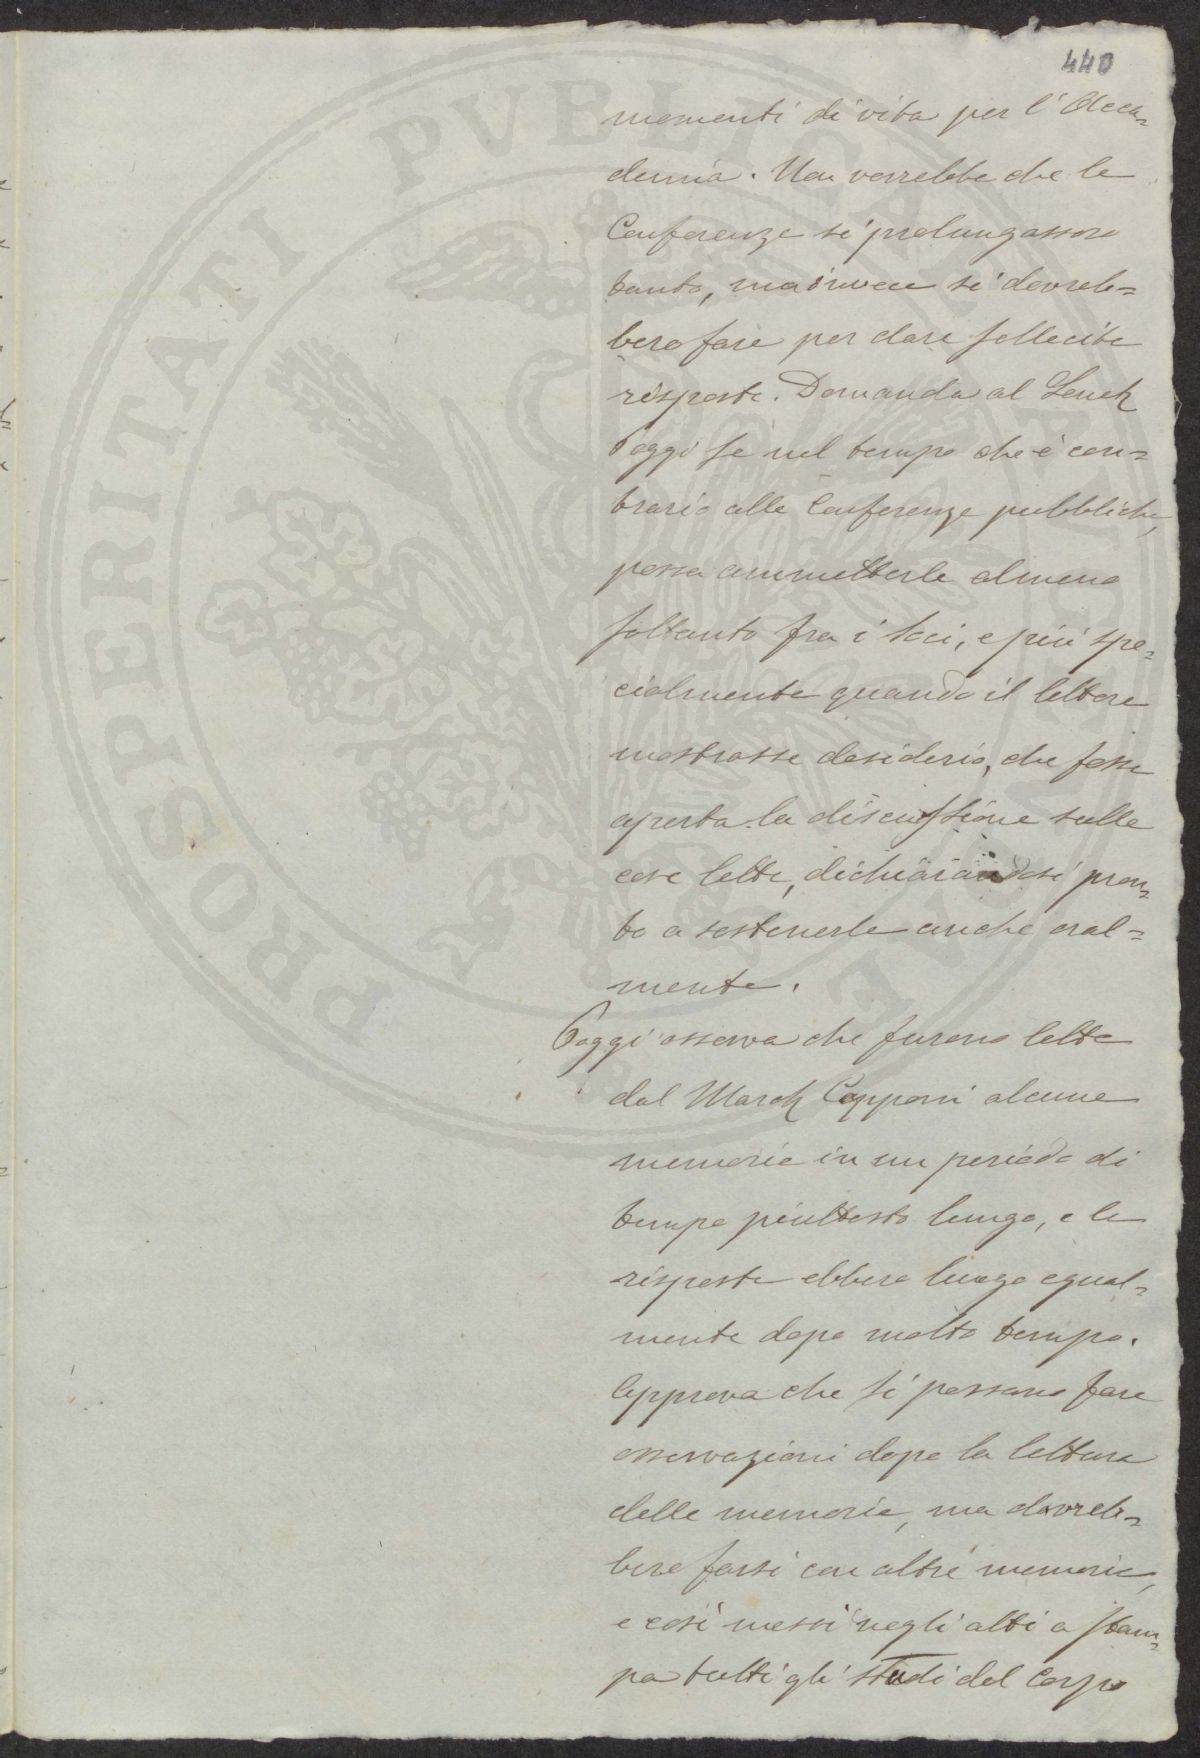 440
momenti di vita per l'Acca=
demia. Non vorrebbe che le
Conferenze si prolungassero
tanto, ma invece si dovreb=
bero fare per dare sollecite
risposte. Domanda al Senat.
Poggi se nel tempo che è con=
trario alle Conferenze pubbliche,
possa ammetterle almeno
soltanto fra i Soci, e più spe=
cialmente quando il lettore
mostrasse desiderio, che fosse
aperta la discussione sulle
cose lette, dichiarandosi pron=
to a sostenerle anche oral=
mente.
Poggi osserva che furono lette
dal March. Capponi alcune
memorie in un periodo di
tempo piuttosto lungo, e le
risposte ebbero luogo egual=
mente dopo molto tempo.
Approva che si possano fare
osservazioni dopo la lettura
delle memorie, ma dovreb=
bero farsi con altre memorie,
e così messi negli atti a stam=
pa tutti gli studi del Corpo
PROSPERITATI PVBLICAE AVGENDAE